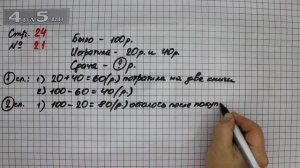 4 на 5
Стр. 24
№ 21
Было - 100р.
Истратила - 20р. и 40р.
Сдача - ? р.
1 сп. 1) 20 + 40 = 60(р.) потратила на две книги
2) 100 - 60 = 40(р.)
2 сп. 1) 100 - 20 = 80(р.) осталось после покуп